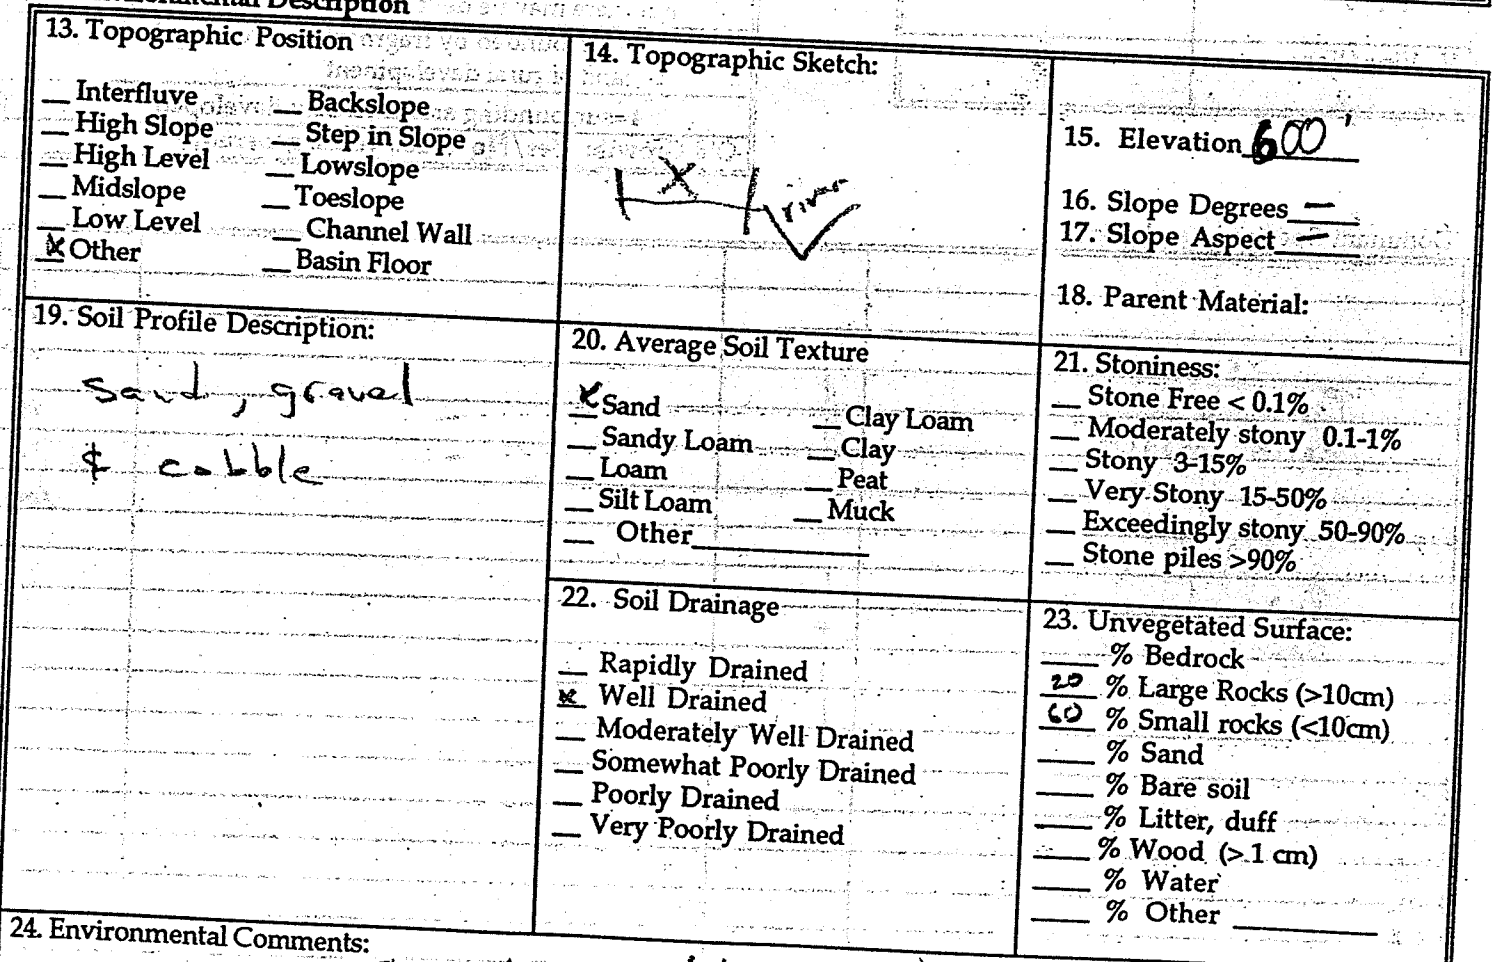 Description
13. Topographic Position
__ Interfluve __ Backslope
__ High Slope __ Step in Slope
__ High Level __ Lowslope
__ Midslope __ Toeslope
__ Low Level __ Channel Wall
x Other __ Basin Floor
14. Topographic Sketch:
X
river
15. Elevation 600'
16. Slope Degrees —
17. Slope Aspect —
18. Parent Material:
19. Soil Profile Description:
sand, gravel
& cobble
20. Average Soil Texture
x Sand __ Clay Loam
__ Sandy Loam __ Clay
__ Loam __ Peat
__ Silt Loam __ Muck
__ Other__________
21. Stoniness:
__ Stone Free < 0.1%
__ Moderately stony 0.1-1%
__ Stony 3-15%
__ Very Stony 15-50%
__ Exceedingly stony 50-90%
__ Stone piles >90%
22. Soil Drainage
__ Rapidly Drained
x Well Drained
__ Moderately Well Drained
__ Somewhat Poorly Drained
__ Poorly Drained
__ Very Poorly Drained
23. Unvegetated Surface:
____ % Bedrock
20 % Large Rocks (>10cm)
60 % Small rocks (<10cm)
____ % Sand
____ % Bare soil
____ % Litter, duff
____ % Wood (> 1 cm)
____ % Water
____ % Other __________
24. Environmental Comments: